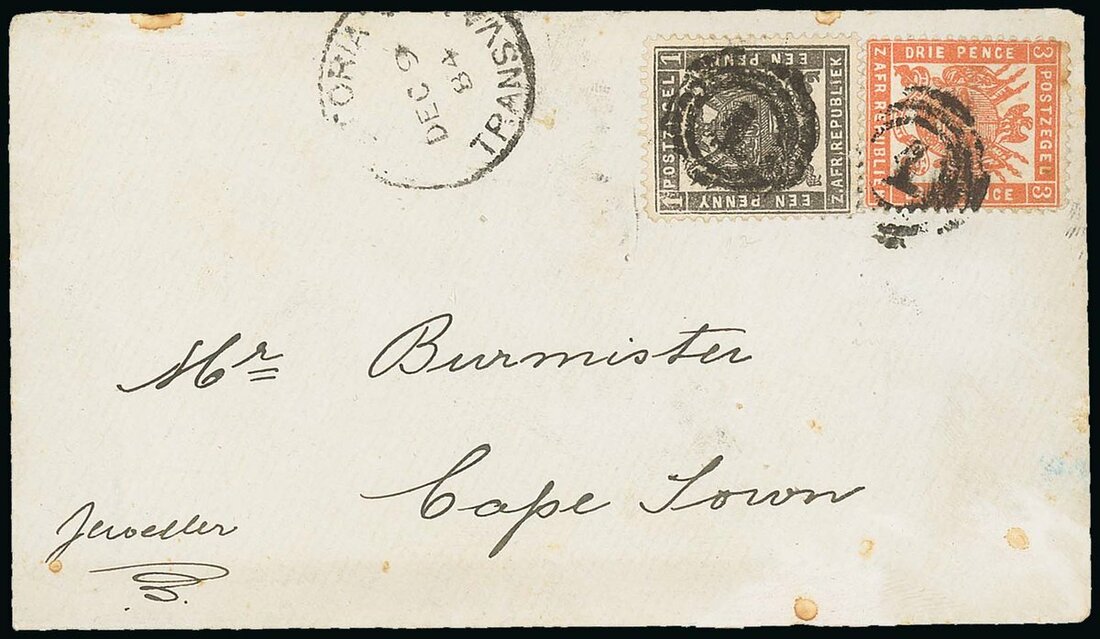 ORIA TRANSVA
DEC 9
84
EEN PENNY
1 POSTZEGEL 1
Z.AFR.REPUBLIEK
EEN PENNY
1
3 DRIE PENCE 3
Z.AFR REPUBLIEK
POSTZEGEL
NCE
1
Mr Burmister
Cape Town
Jeweller